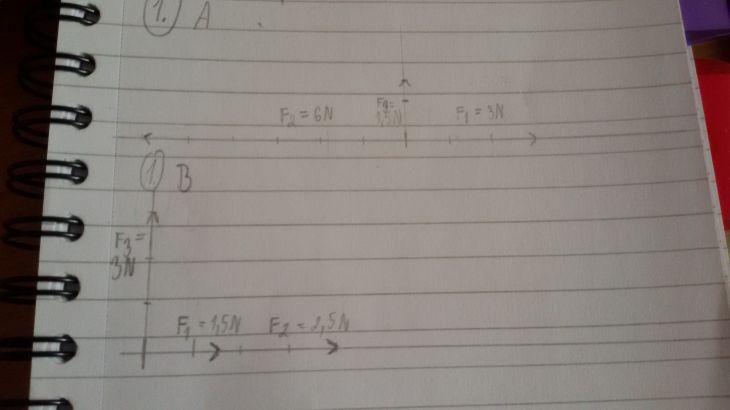 1. A
F2 = 6N
F4 =
1,5N
F1 = 3N
1. B
F3 =
3N
F1 = 1,5N
F2 = 2,5N